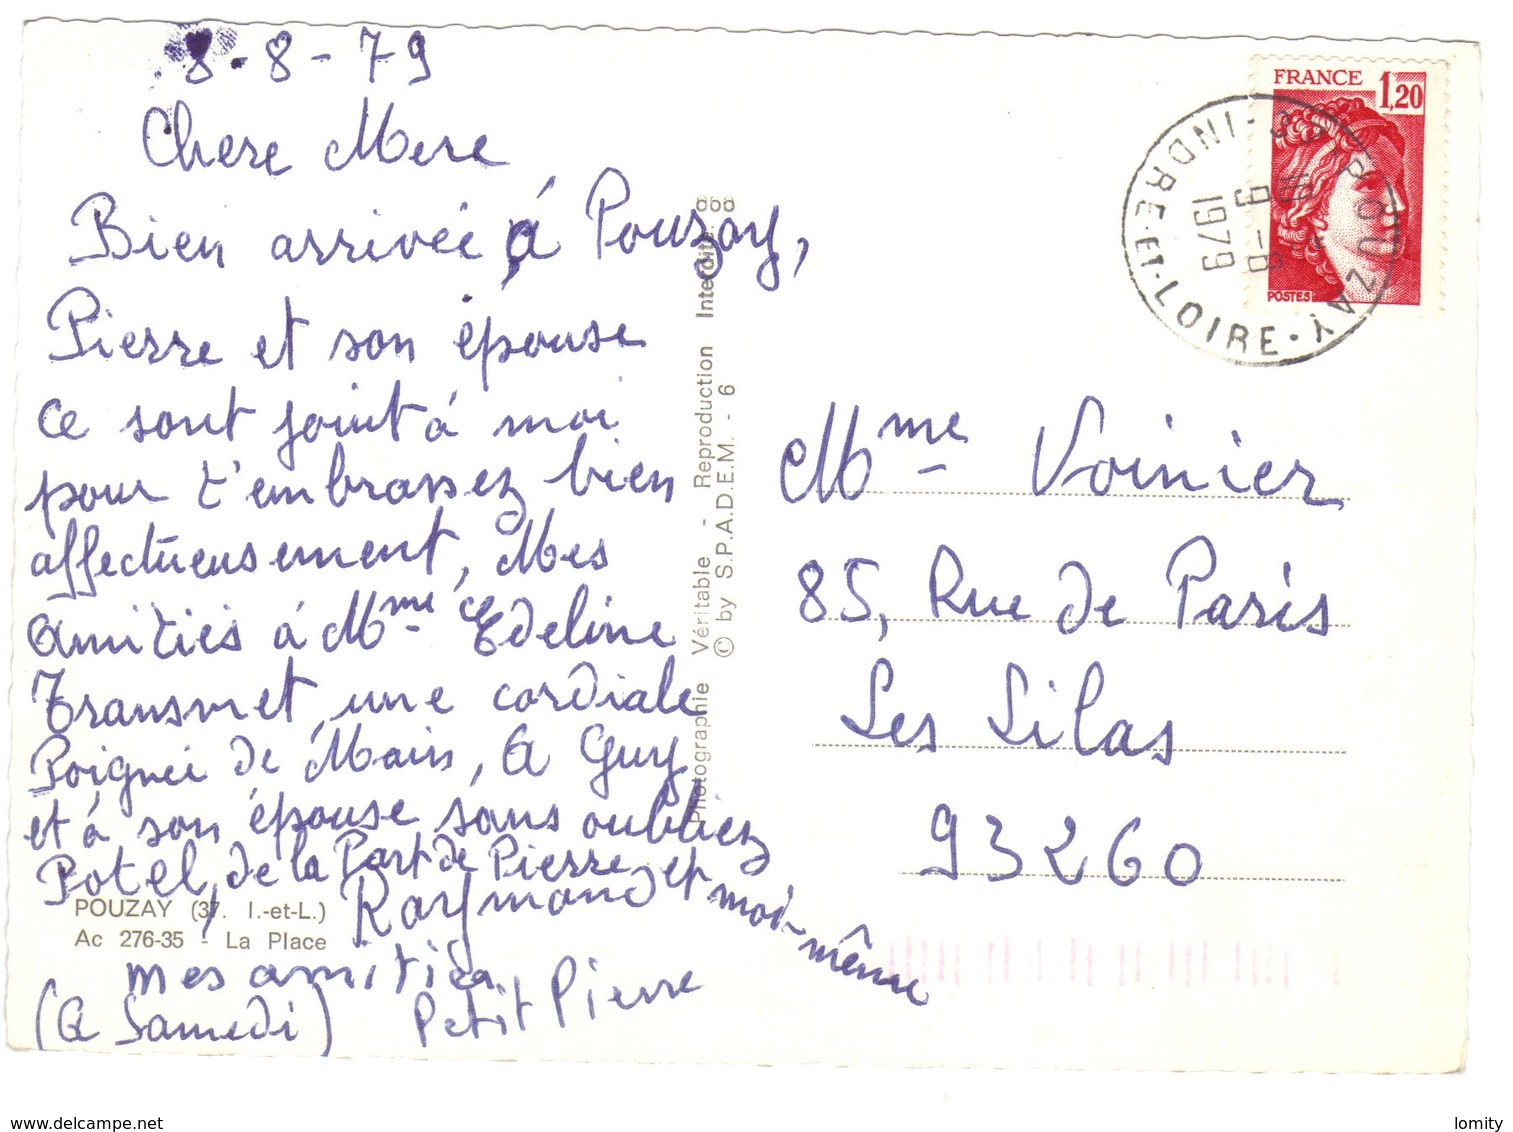 8-8-79
Chere Mere
Bien arrivée à Pouzay,
Pierre et son épouse
ce sont joint à moi
pour t'embrassez bien
affectueusement, Mes
Amitiés à Mme Edeline
Transmet une cordiale
Poignée de Main, A Guy
et à son épouse sans oubliez
Potel, de la Part de Pierre et moi-même
Raymond
mes amitiés
(A Samedi) Petit Pierre
POUZAY (37. I.-et-L.)
Ac 276-35 - La Place
Photographie Véritable - Reproduction Interdite
© by S.P.A.D.E.M. - 6
FRANCE 1,20
POSTES
37 POUZAY
INDRE-ET-LOIRE
9-8
1979
Mme Voinier
85, Rue de Paris
Les Lilas
93260
www.delcampe.net
lomity